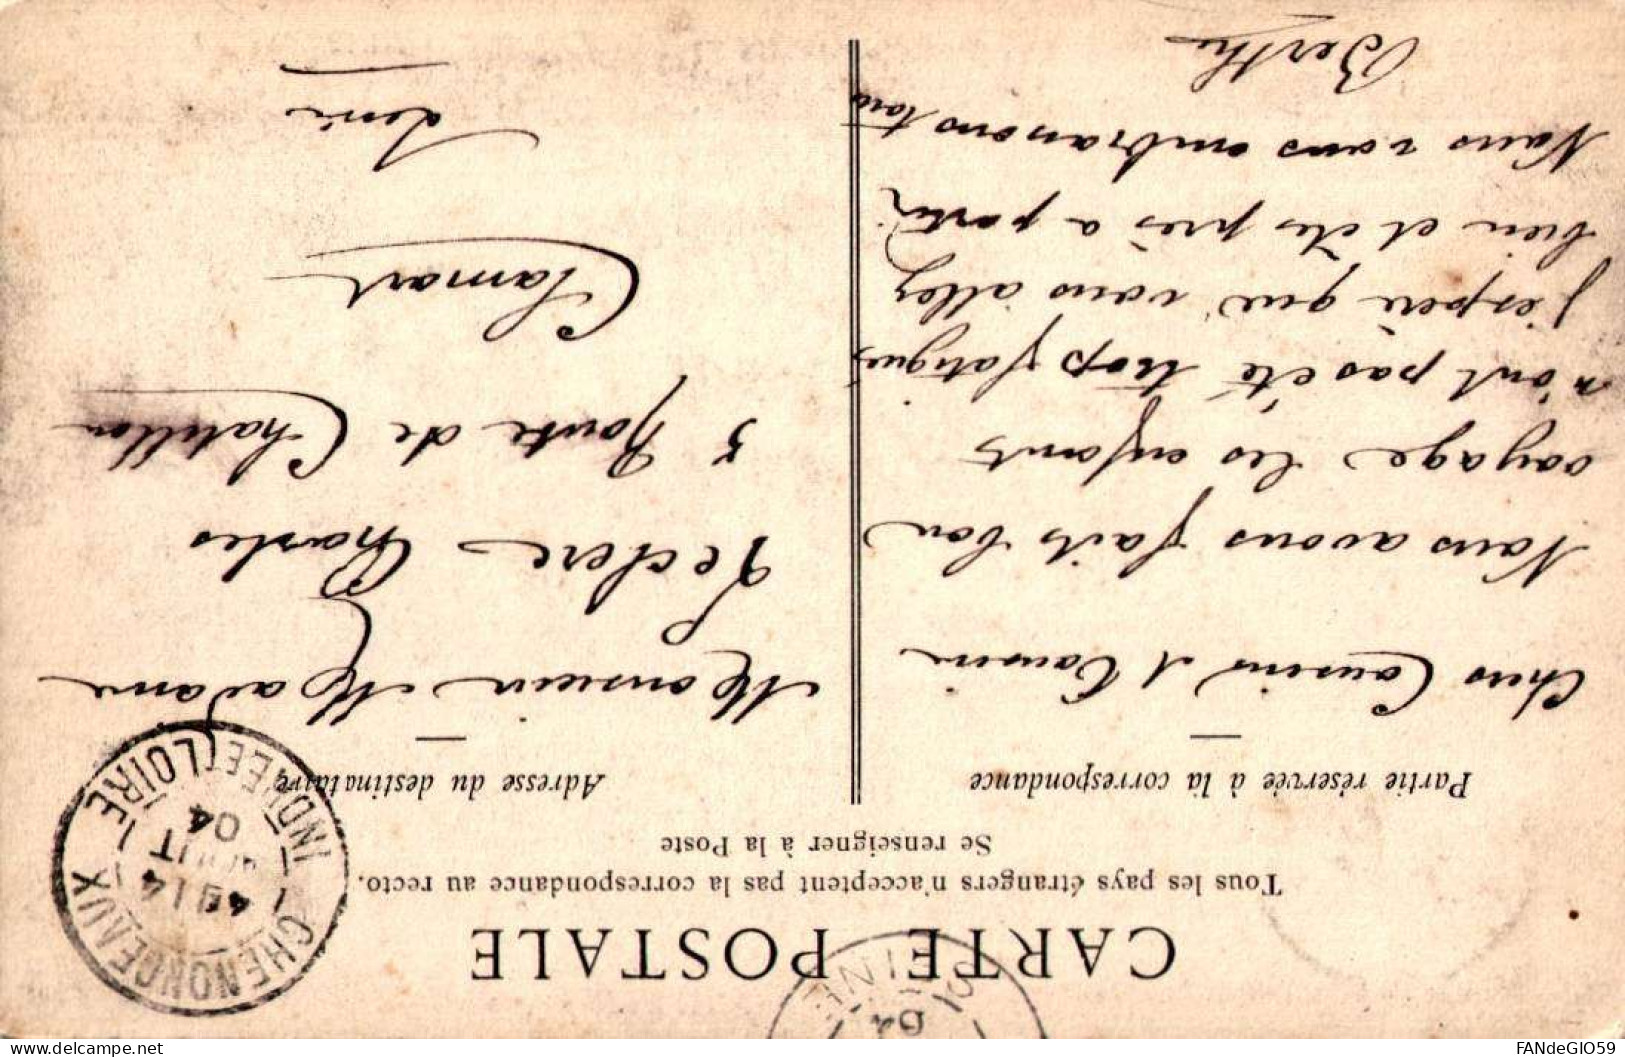 CARTE POSTALE
Tous les pays étrangers n'acceptent pas la correspondance au recto.
Se renseigner à la Poste
Partie réservée à la correspondance
Chers Cousins et Cousine
Nous avons faits bon
voyage les enfants
n'ont pas été trop fatigués
j'espère que vous allez
bien et êts près a partir
Nous vous embrassons tous
Berthe
Adresse du destinataire
Monsieur Madame
Leclerc Charles
5 Route de Chatillon
Clamart
Seine
CHENONCEAUX
14
04
INDRE ET LOIRE
SEINE
04
www.delcampe.net
FANdeGIO59